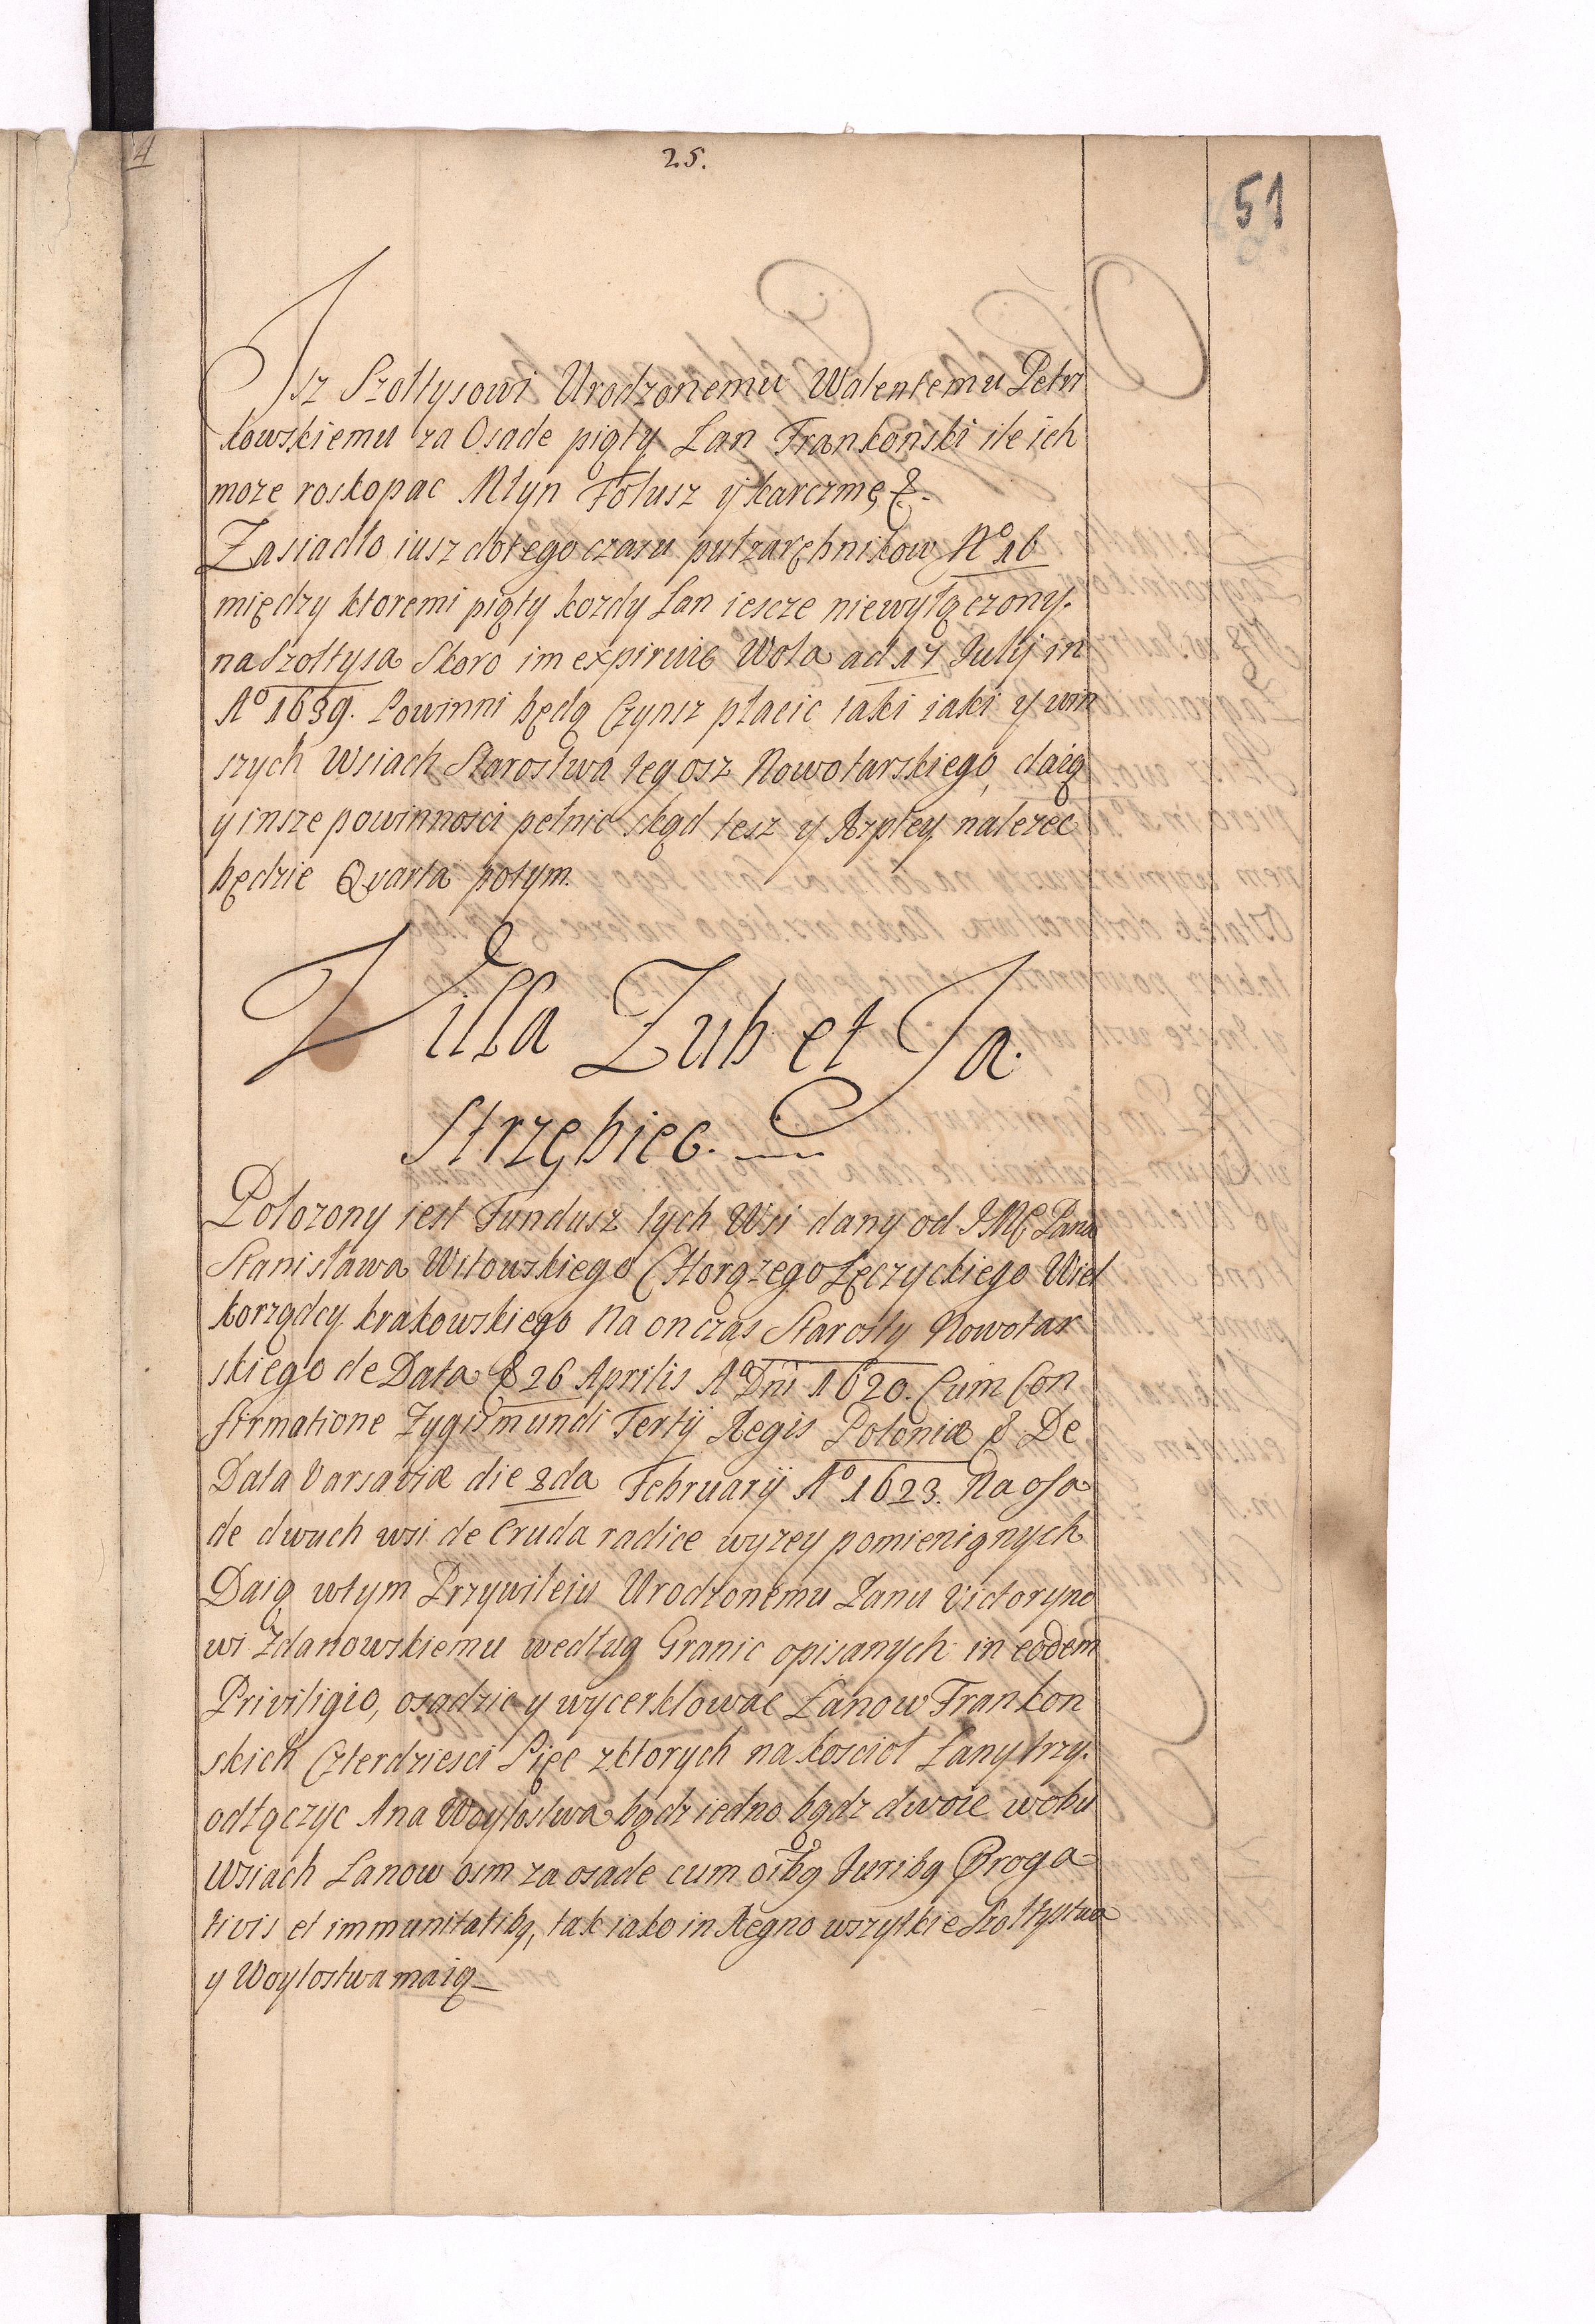 25.
51
Isz Szołtysowi Urodzonemu Walentemu Petri
kowskiemu za Osade piąty Łan Frankonski ile ich
moze roskopac Młyn Folusz ÿ karczmę &.
Zasiadło iusz dotego czasu putzarębnikow Nº 16
między ktoremi piąty kozdy Łan iescze niewyłączony.
na Szołtysa Skoro im expiruie Wola ad 17 Julij in
Aº 1639. Powinni będą Czynsz płacic taki iaki y win
szych Wsiach Starostwa tegosz Nowotarskiego, daią
y insze powinnosci pełnic skąd tesz ÿ Rzpltey nalezec
będzie Qvarta potym.
Villa Zub et Ja.
Strzębiec.
Polozony iest Fundusz tych Wsi dany od JMC Pana
Stanisława Witowskiego CHorązego Łęczyckiego Wiel
korządcy krakowskiego Na on czas Starosty Nowotar
skiego de Data & 26 Aprilis Aº Dni 1620. Cum Con
firmatione Zygismundi Tertij Regis Poloniæ & De
Data Varsaviæ die 8da Februarij Aº 1623. Na osa
de dwuch wsi de Cruda radice wyzey pomienignych
Daią wtym Przywileiu Urodzonemu Panu Victoryno
wi Zdanowskiemu według Granic opisanych in eodem
Priviligio, osadzic y wycerklowac Łanow Frankon
skich Czterdziesci Pięc zktorych na koscioł Łany trzy.
odłączyc Ana Woytostwa bądz iedno bądz dwoie wobu
Wsiach Łanow osm za osade cum oibq Juribq Proga
tivis et immunitatibq, tak iako in Regno wszytkie Szołtystwa
y Woytostwa maią